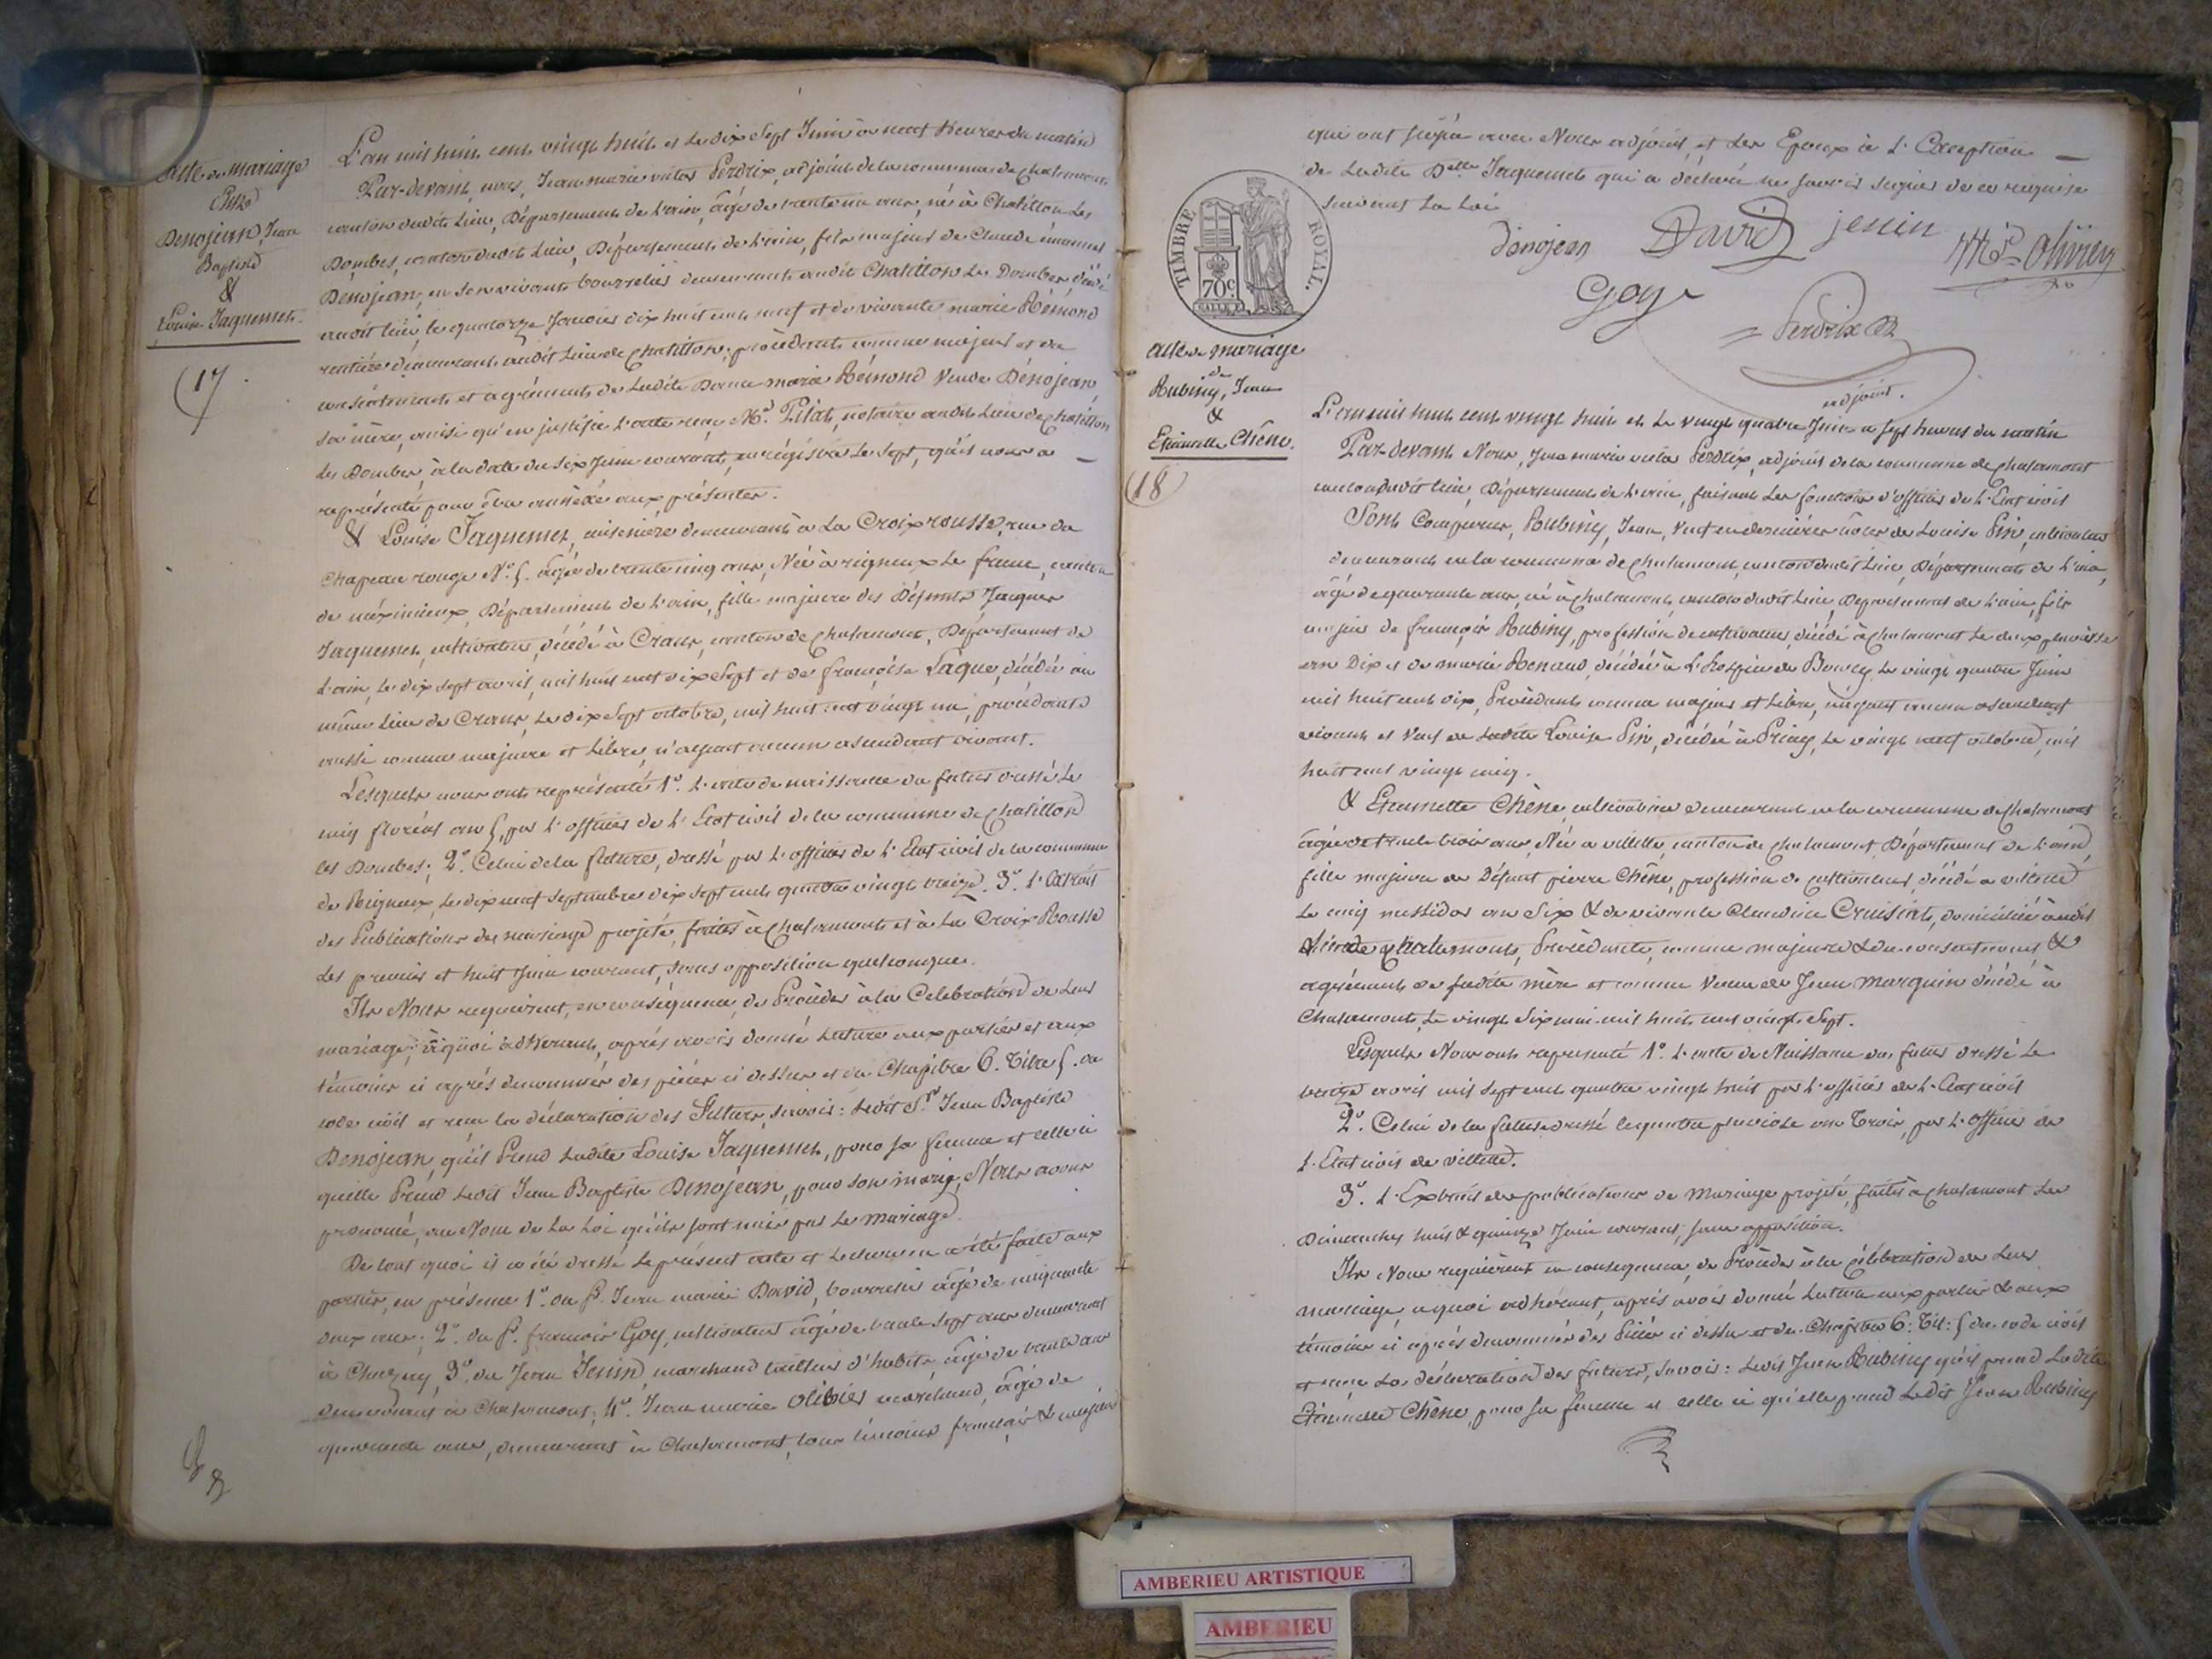 acte de mariage
Entre
Denojean, Jean
Baptiste
&
Louise Jaquemet.
17
L'an mil huit cent vingt huit et le dix Sept Juin à neuf heures du matin
Par-devant, nous, Jean marie victor Perdrix, adjoint de la commune de Chalamont
canton dudit Lieu, Département de l'ain, âgé de trente un ans, né à Chatillon Les
Dombes, canton dudit Lieu, Département de l'ain, fils majeur de Claude
Denojean, en son vivant bourrelier demeurant audit Chatillon Les Dombes, décédé
audit lieu, le quatorze Janvier dix huit cent neuf et de vivante marie Rémond
rentière demeurant audit Lieu de Chatillon; procédant comme majeur et du
consentement et agrément de Ladite Dame marie Rémond Veuve Dénojean,
sa mère, ainsi qu'en justifie l'acte reçu Me. Pilat, notaire audit Lieu de Chatillon
les Dombes, à la date du six Juin courant, enrégistré le Sept, qu'il nous a
représenté pour être annéxé aux présentes.
& Louise Jaquemet, cuisiniere demeurant à La Croix rousse, rue du
Chapeau rouge No. 5. âgée de trente cinq ans, Née à rigneux Le franc, canton
de méximieux, Département de l'ain, fille majeure des Défunts Jacques
Jaquemet, cultivateur, décédé à Crans, canton de Chalamont, Département de
L'ain, le dix sept avril, mil huit cent dix Sept et de françoise Lâque, décédée au
même Lieu de Crans, Le dix Sept octobre, mil huit cent vingt un, procédante
aussi comme majeure et Libre, n'ayant aucun ascendant vivant.
Lesquels nous ont représenté 1o. l'acte de naissance du futur dressé Le
cinq floréal an 5, par l'officier de l'Etat civil de la commune de Chatillon
les Dombes; 2o. Celui de la future, dressé par L'officier de l'Etat civil de la commune
de Rigneux, Le dix neuf Septembre dix sept cent quatre vingt treize. 3o. l'Extrait
des Publications du mariage projeté, faites à Chalamont et à La Croix Rousse
les premier et huit Juin courant, sans opposition quelconque.
Ils Nous requierent, en conséquence, de Procéder à la Celebration de Leur
mariage; à quoi adhérant, après avoir donné Lecture aux parties et aux
témoins ci après denommés des pièces ci dessus et du Chapitre 6. Titre 5. du
code civil et reçu la déclaration des Futurs, savoir: Ledit Sr. Jean Baptiste
Denojean, qu'il Prend Ladite Louise Jaquemet, pour sa femme et celle ci
quelle Prend Ledit Jean Baptiste Denojean, pour son mari, Nous avons
prononcé, au Nom de La Loi qu'ils sont unis par Le mariage.
De tout quoi il a été dressé Le présent acte et Lecture en a été faite aux
parties, en présence 1o. du Sr. Jean marie David, bourrelier âgé de cinquante
deux ans; 2o. du Sr. françois Goy, cultivateur âgé de trente sept ans demeurant
à 3o. du Jean Jenin, marchand tailleur d'habits âgé de trente ans
demeurant à Chalamont; 4o. Jean marie Olivier maréchand, âgé de
quarante ans, demeurant à Chalamont, tous témoins français & majeurs
qui ont signé avec Nous adjoint, et Les Epoux à L'Exception
de Ladite Delle Jaquemet qui a déclaré ne savoir signer de ce requise
suivant La Loi
denojean David jenin
Md Olivier
Goy
Perdrix
adjoint.
TIMBRE ROYAL.
70c
acte de mariage
de
Rubiny, Jean
&
Etiennette Chêne.
18
L'an mil huit cent vingt huit et Le vingt quatre Juin à sept heures du matin
Par-devant Nous, Jean marie victor Perdrix, adjoint de la commune de Chalamont
canton dudit lieu, Département de l'ain, faisant Les fonctions d'officier de l'Etat civil
Sont Comparus, Rubiny, Jean, veuf en dernières nôces de Louise Pin, cultivateur
demeurant en la commune de Chalamont, canton dudit Lieu, Département de l'ain,
âgé de quarante ans, né à Chalamont, canton dudit Lieu, Département de l'ain, fils
majeur de françois Rubiny, profession de cultivateur, décédé à Chalamont Le deux pluviôse
an Dix et de marie Renaud, décédée à L'hospice de Bourg, Le vingt quatre Juin
mil huit cent dix, Procédant comme majeur et Libre, n'ayant aucun ascendant
vivant et veuf de Ladite Louise Pin, décédée à Priay, Le vingt neuf octobre, mil
huit cent vingt cinq.
& Etiennette Chêne, cultivatrice demeurant en la commune de Chalamont
âgée de trente trois ans, Née à villette, canton de Chalamont, Département de l'ain,
fille majeure de Défunt pierre Chêne, profession de cultivateur, décédé à villette
Le cinq messidor an Six & de vivante Claudine Cruisiat, domiciliée audit
Lieu de Chalamont, Procédante, comme majeure & du consentement &
agrément de sadite mère et comme Veuve de Jean marquin décédé à
Chalamont, Le vingt Six mai mil huit cent vingt Sept.
Lesquels Nous ont representé 1o. L'acte de Naissance du futur dressé Le
treize avril mil Sept cent quatre vingt huit par l'officier de l'Etat civil
2o. Celui de la future dressé le quatre pluviose an Trois, par L'officier de
L'Etat civil de villette.
3o. L'Extrait des publications de Mariage projeté, faites à Chalamont Les
Dimanches huit & quinze Juin courant, sans opposition.
Ils Nous requièrent en consequence, de Procéder à la célébration de Leur
mariage, à quoi adhérant, après avoir donné Lecture aux parties & aux
témoins ci après denommés des Pièces ci dessus et du Chapitre 6: Tit: 5 du code civil
et reçu La déclaration des futurs, savoir: Ledit Jean Rubiny qu'il prend Ladite
Etiennette Chêne, pour sa femme et celle ci qu'elle prend Ledit Jean Rubiny
AMBERIEU ARTISTIQUE
AMBERIEU